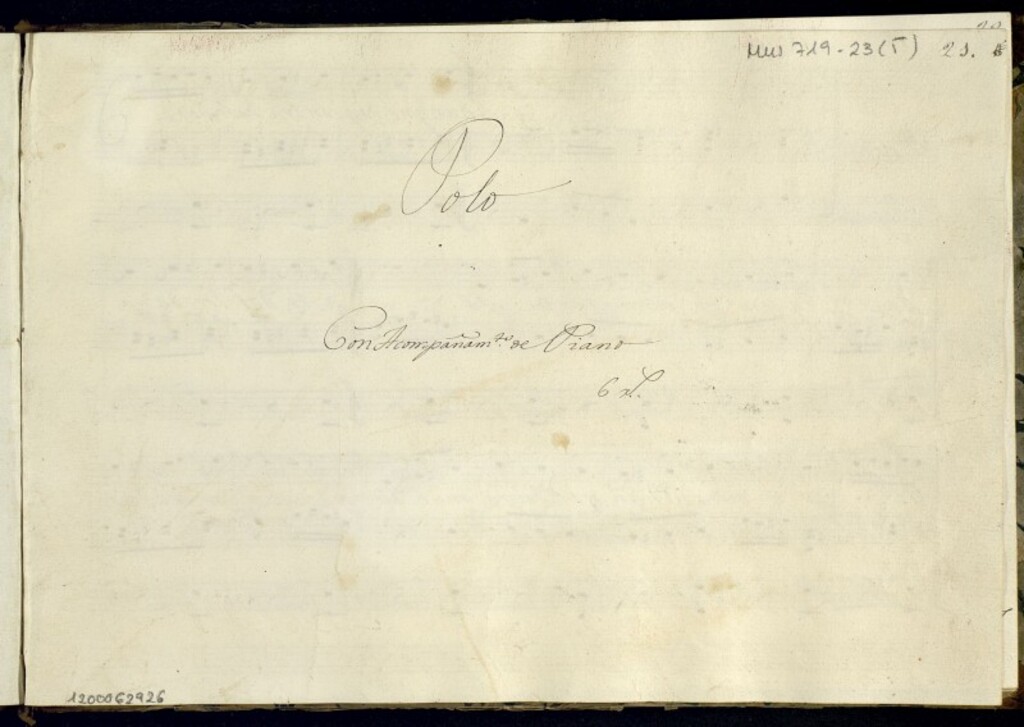 Mus 719-23 (I) 21.
Polo
Con Acompañam.to de Piano
6 rl.
1200062926